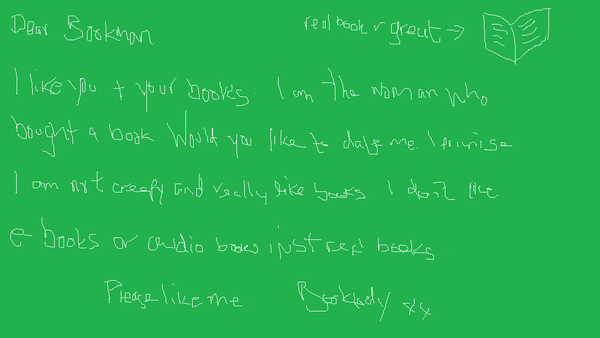 Dear Bookman
real book r great →
I like you + your books. I am the woman who
bought a book. Would you like to date me. I promise
I am not creepy and really like books. I don't like
e-books or audio books just real books.
Please like me. Booklady xx